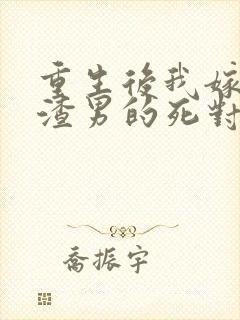 重生後我嫁
渣男的死對
喬振宇